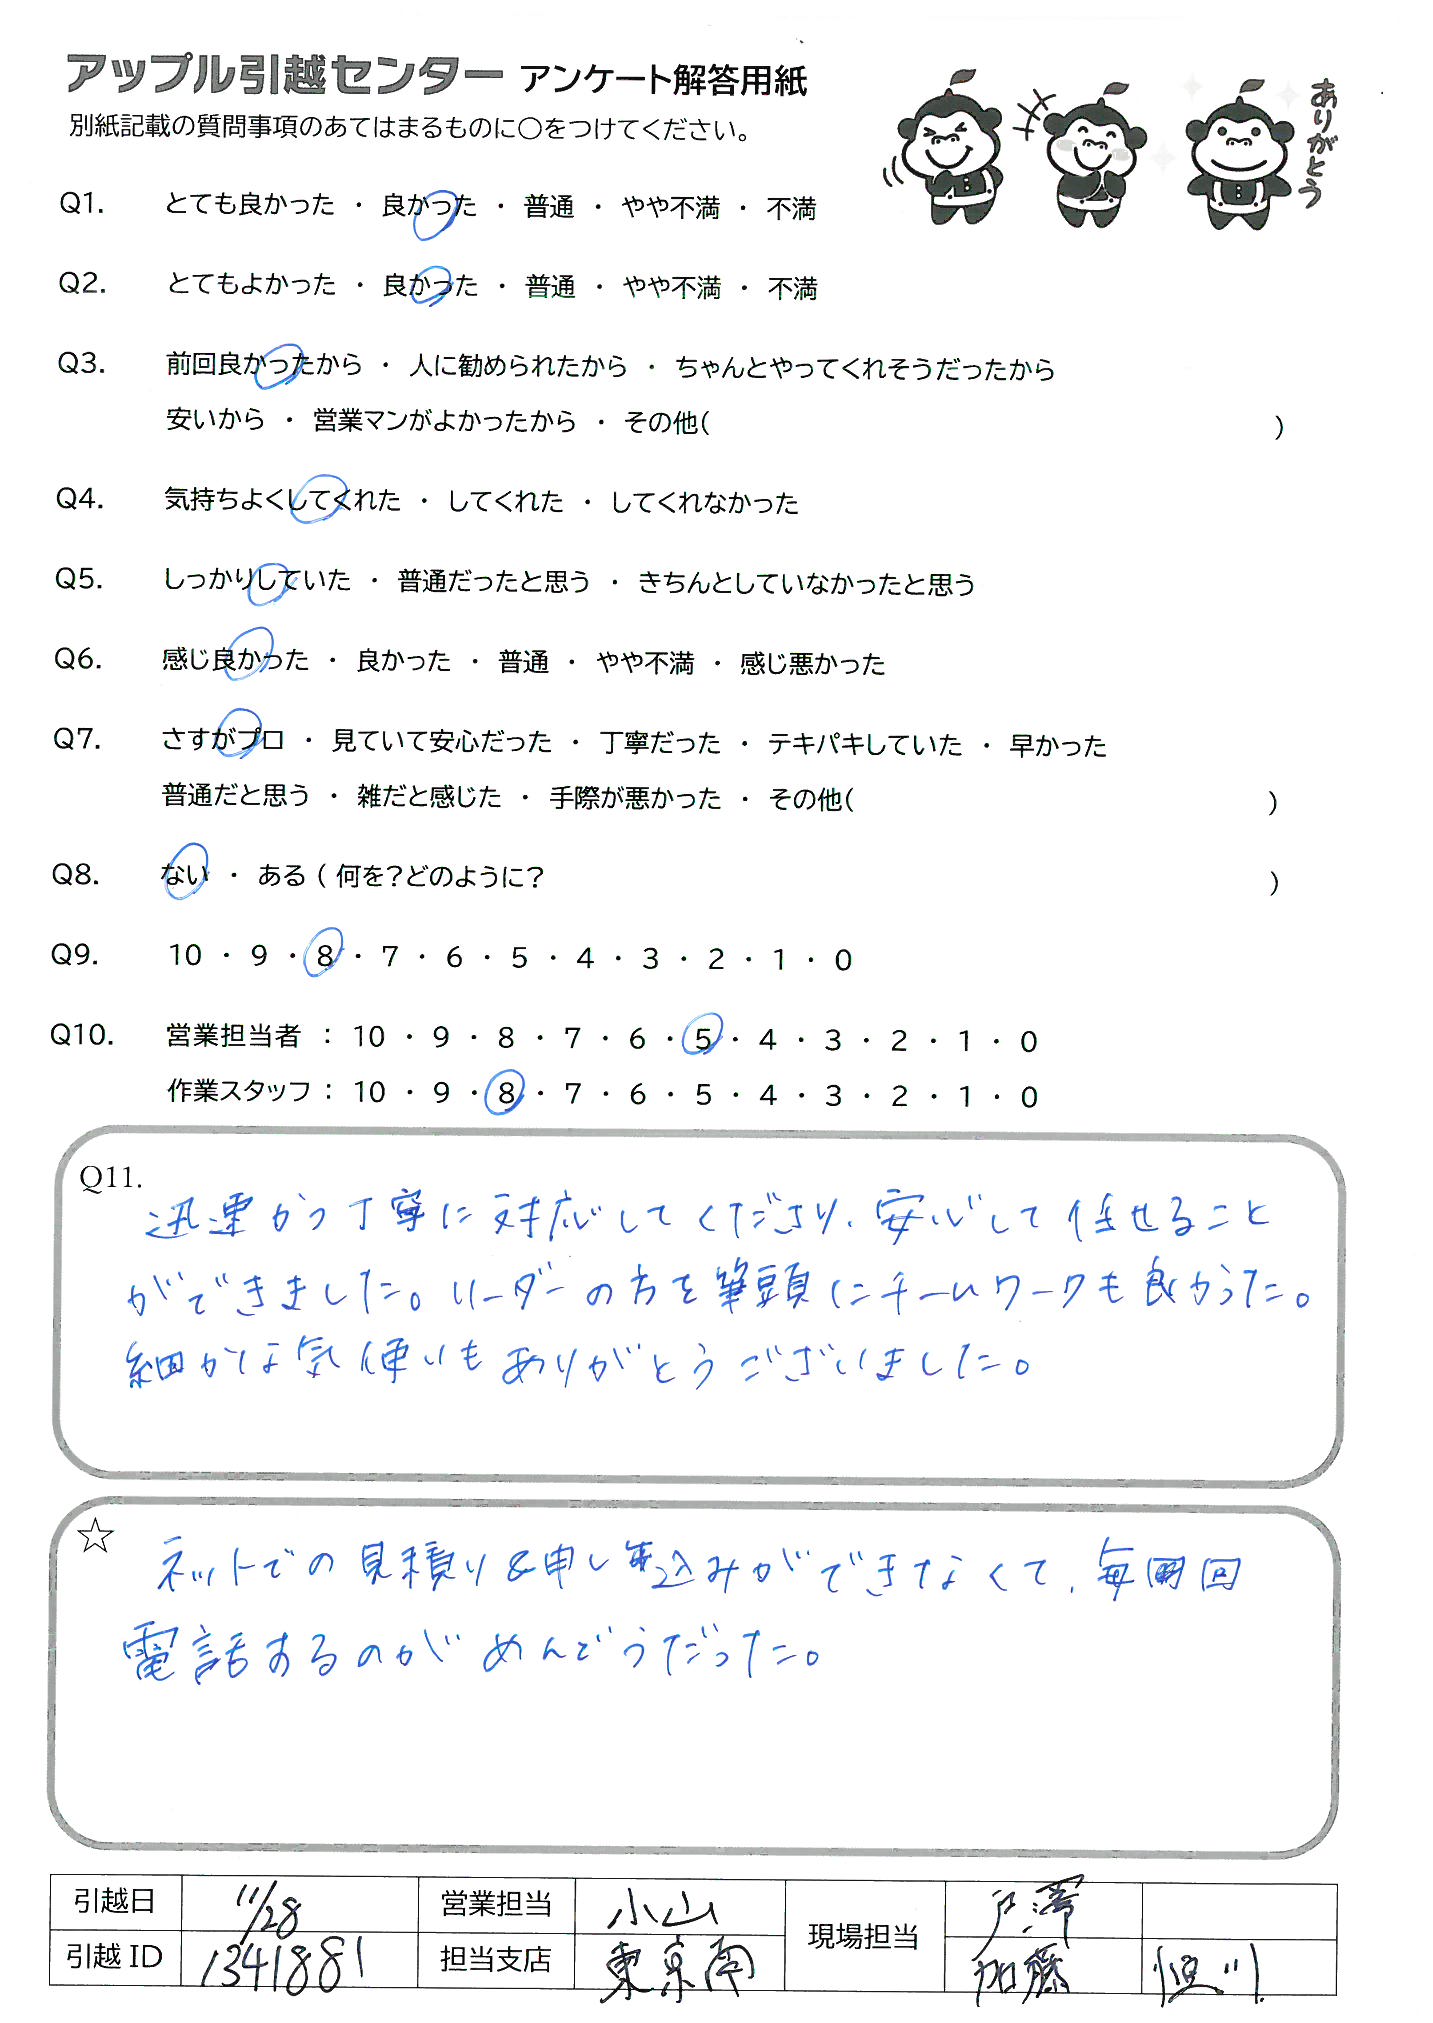 アップル引越センター アンケート解答用紙
別紙記載の質問事項のあてはまるものに○をつけてください。
ありがとう
Q1. とても良かった ・ 良かった ・ 普通 ・ やや不満 ・ 不満
Q2. とてもよかった ・ 良かった ・ 普通 ・ やや不満 ・ 不満
Q3. 前回良かったから ・ 人に勧められたから ・ ちゃんとやってくれそうだったから
安いから ・ 営業マンがよかったから ・ その他( )
Q4. 気持ちよくしてくれた ・ してくれた ・ してくれなかった
Q5. しっかりしていた ・ 普通だったと思う ・ きちんとしていなかったと思う
Q6. 感じ良かった ・ 良かった ・ 普通 ・ やや不満 ・ 感じ悪かった
Q7. さすがプロ ・ 見ていて安心だった ・ 丁寧だった ・ テキパキしていた ・ 早かった
普通だと思う ・ 雑だと感じた ・ 手際が悪かった ・ その他( )
Q8. ない ・ ある ( 何を?どのように? )
Q9. 10 ・ 9 ・ 8 ・ 7 ・ 6 ・ 5 ・ 4 ・ 3 ・ 2 ・ 1 ・ 0
Q10. 営業担当者 : 10 ・ 9 ・ 8 ・ 7 ・ 6 ・ 5 ・ 4 ・ 3 ・ 2 ・ 1 ・ 0
作業スタッフ : 10 ・ 9 ・ 8 ・ 7 ・ 6 ・ 5 ・ 4 ・ 3 ・ 2 ・ 1 ・ 0
Q11.
迅速かつ丁寧に対応してくださり、安心して任せること
ができました。リーダーの方を筆頭にチームワークも良かった。
細かな気使いもありがとうございました。
☆
ネットでの見積り&申し込みができなくて、毎回
電話するのがめんどうだった。
引越日 11/28 営業担当 小山 現場担当 戸澤
引越ID 1341881 担当支店 東京南 加藤 恒川